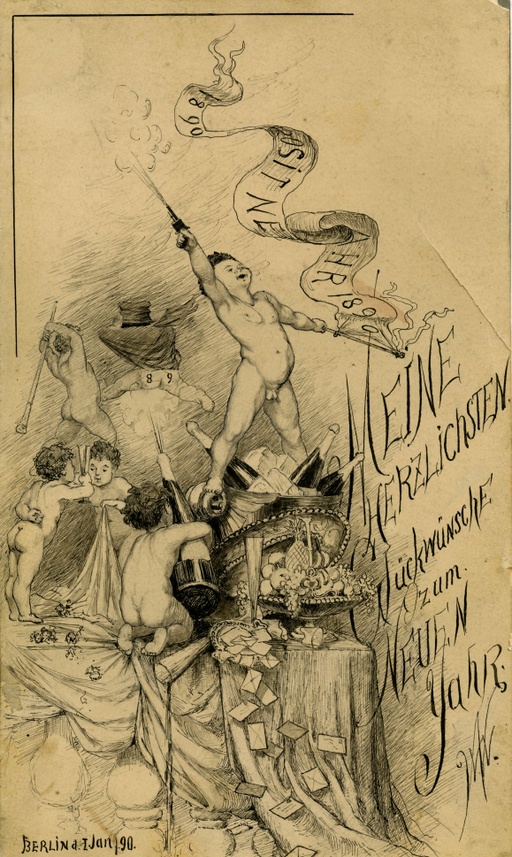 890
OSIT NE
HR 1890
89
MEINE
HERZLICHSTEN
Glückwünsche
zum
NEUEN
Jahr.
BERLIN d. 1 Jan. 90.